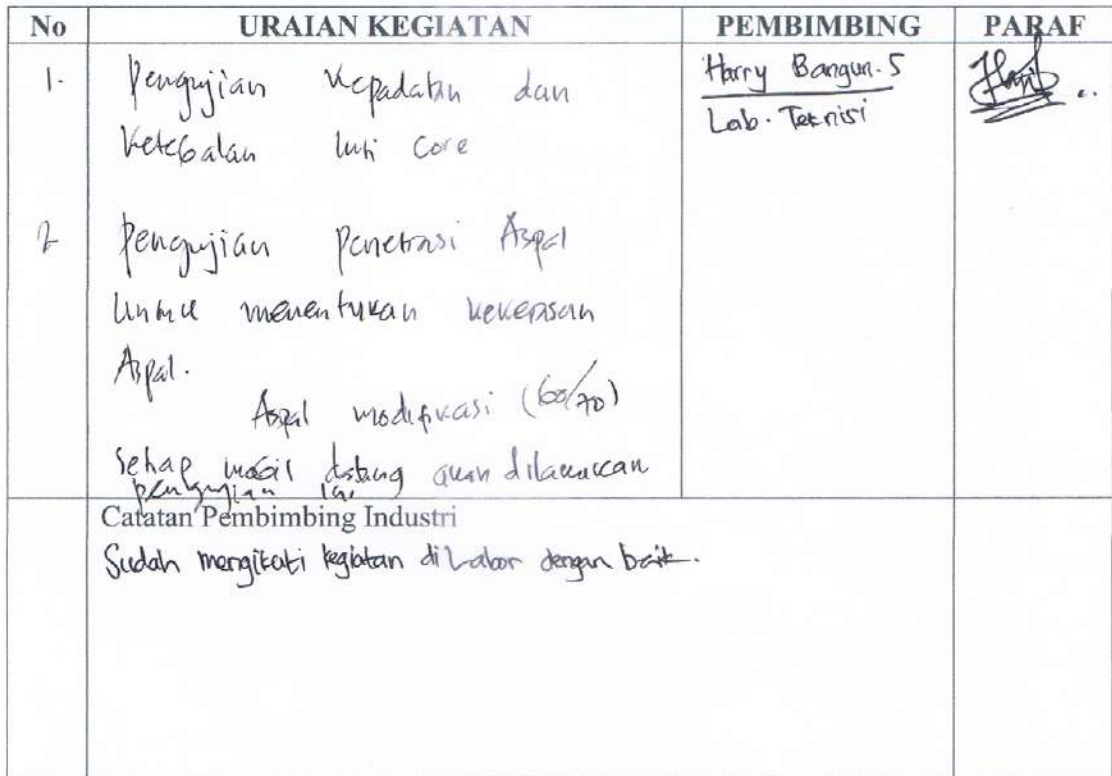 No URAIAN KEGIATAN PEMBIMBING PARAF
1. Pengujian Kepadatan dan Harry Bangun. S
Ketebalan inti Core Lab. Teknisi
2 Pengujian Penetrasi Aspal
Untuk menentukan kekerasan
Aspal.
Aspal modifikasi (60/70)
Setiap mobil datang akan dilakukan
pengujian
Catatan Pembimbing Industri
Sudah mengikuti kegiatan di Labor dengan baik.